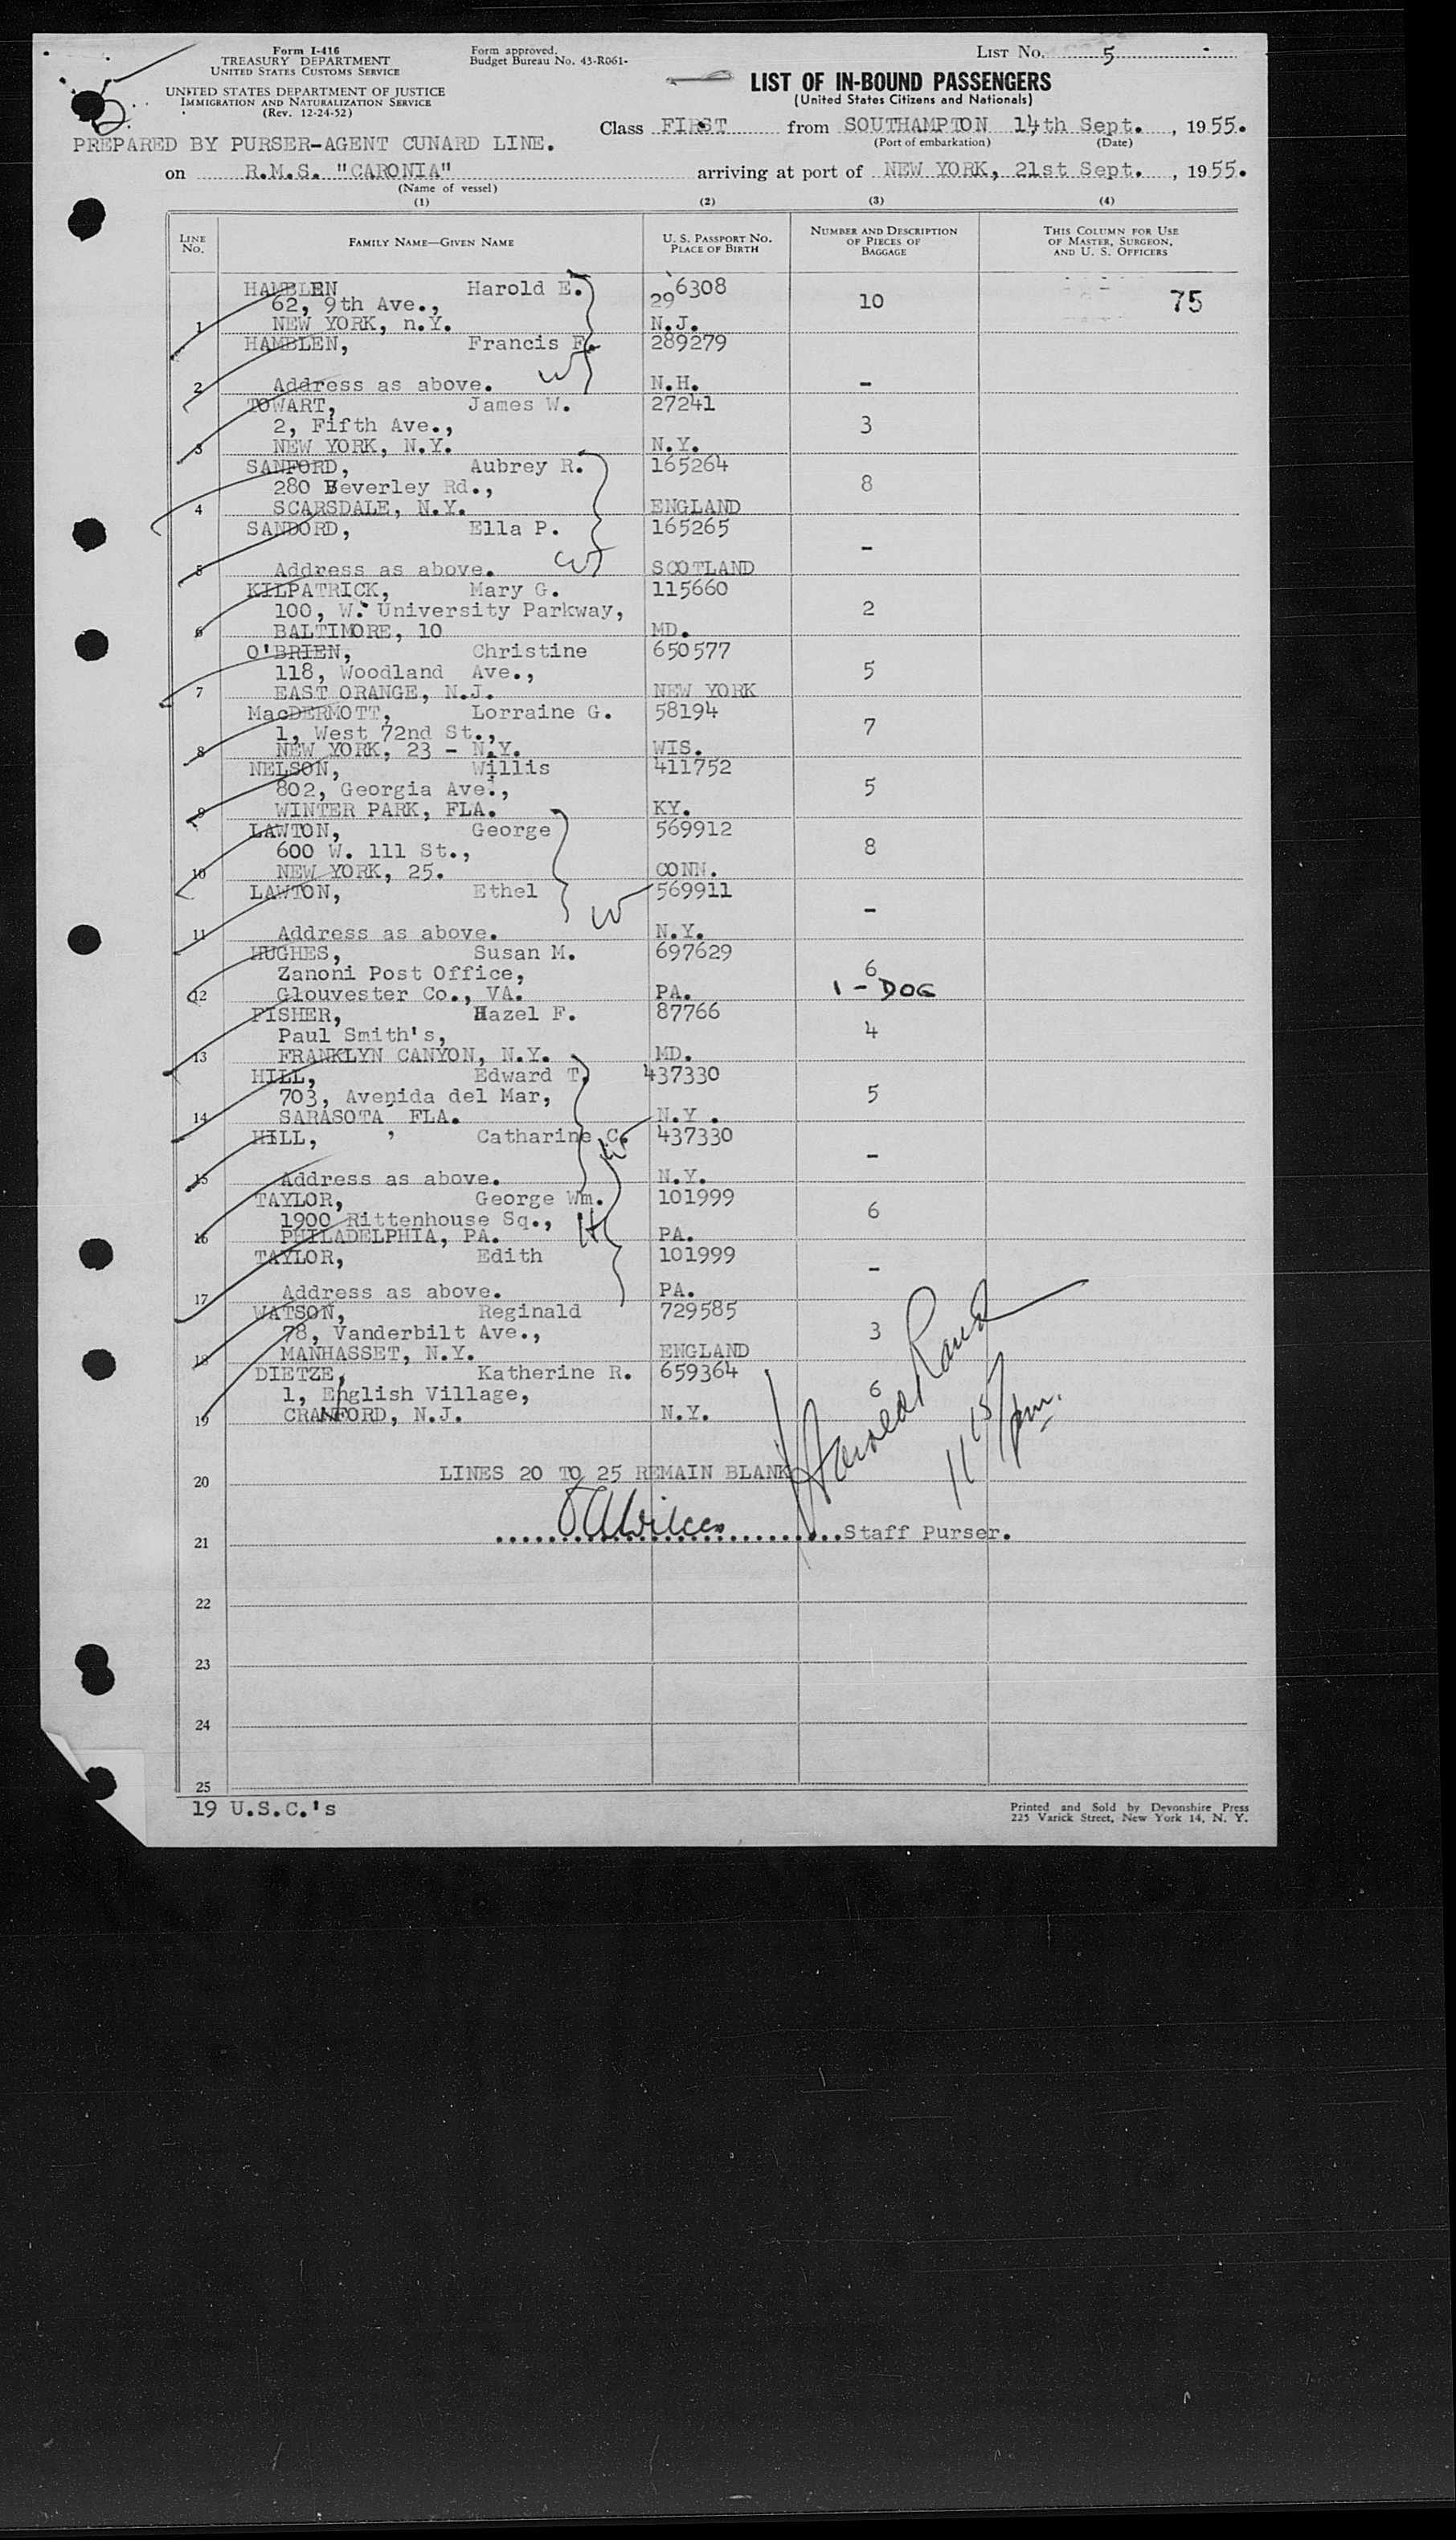 Form I-416
TREASURY DEPARTMENT
UNITED STATES CUSTOMS SERVICE
UNITED STATES DEPARTMENT OF JUSTICE
IMMIGRATION AND NATURALIZATION SERVICE
(Rev. 12-24-52)
Form approved.
Budget Bureau No. 43-R061-
LIST NO. 5
LIST OF IN-BOUND PASSENGERS
(United States Citizens and Nationals)
Class FIRST from SOUTHAMPTON 14th Sept. , 1955.
(Port of embarkation) (Date)
PREPARED BY PURSER-AGENT CUNARD LINE.
on R.M.S. "CARONIA" arriving at port of NEW YORK, 21st Sept. , 1955.
(Name of vessel)
(1) (2) (3) (4)
LINE NO. FAMILY NAME—GIVEN NAME U. S. PASSPORT NO. PLACE OF BIRTH NUMBER AND DESCRIPTION OF PIECES OF BAGGAGE THIS COLUMN FOR USE OF MASTER, SURGEON, AND U. S. OFFICERS
HAMBLEN Harold E. 296308
62, 9th Ave., 10 75
1 NEW YORK, n.Y. N.J.
HAMBLEN, Francis F. 289279
W
2 Address as above. N.H. -
TOWART, James W. 27241
2, Fifth Ave., 3
3 NEW YORK, N.Y. N.Y.
SANFORD, Aubrey R. 165264
280 Beverley Rd., 8
4 SCARSDALE, N.Y. ENGLAND
SANDORD, Ella P. 165265
- W
5 Address as above. SCOTLAND
KILPATRICK, Mary G. 115660
100, W. University Parkway, 2
6 BALTIMORE, 10 MD.
O'BRIEN, Christine 650577
118, Woodland Ave., 5
7 EAST ORANGE, N.J. NEW YORK
MacDERMOTT, Lorraine G. 58194
1, West 72nd St., 7
8 NEW YORK, 23 - N.Y. WIS.
NELSON, Willis 411752
802, Georgia Ave., 5
9 WINTER PARK, FLA. KY.
LAWTON, George 569912
600 W. 111 St., 8
10 NEW YORK, 25. CONN.
LAWTON, Ethel 569911
W -
11 Address as above. N.Y.
HUGHES, Susan M. 697629
Zanoni Post Office, 6
12 Glouvester Co., VA. PA. 1 - DOG
FISHER, Hazel F. 87766
Paul Smith's, 4
13 FRANKLYN CANYON, N.Y. MD.
HILL, Edward T. 437330
703, Avenida del Mar, 5
14 SARASOTA FLA. N.Y .
HILL, , Catharine C. 437330
-
15 Address as above. N.Y.
TAYLOR, George Wm. 101999
1900 Rittenhouse Sq., H 6
16 PHILADELPHIA, PA. PA.
TAYLOR, Edith 101999
-
17 Address as above. PA.
WATSON, Reginald 729585
78, Vanderbilt Ave., 3
18 MANHASSET, N.Y. ENGLAND
DIETZE, Katherine R. 659364
1, English Village, 6
19 CRANFORD, N.J. N.Y.
Harold Rand
11 15/pm.
20 LINES 20 TO 25 REMAIN BLANK
21 Staff Purser.
22
23
24
25
19 U.S.C.'s
Printed and Sold by Devonshire Press
225 Varick Street, New York 14, N. Y.